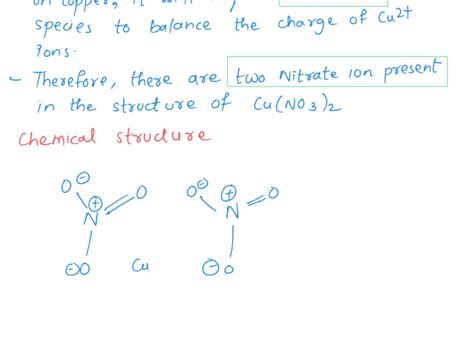 species to balance the charge of Cu2+
ions.
- Therefore, there are two Nitrate ion present
in the structure of Cu(NO3)2
Chemical structure
O⊖ O O⊖ ⊕ O
⊕
N N
⊖O Cu ⊖O